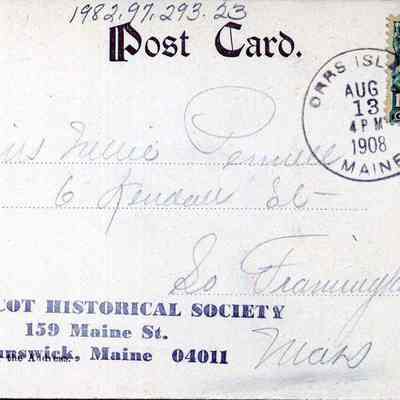 1982.97.293.23
Post Card.
ORRS ISL
AUG
13
4 PM
1908
MAINE
iss Nellie
6 Kendall St-
So Framingh
COT HISTORICAL SOCIETY
159 Maine St.
unswick, Maine 04011
the Address.
Mass